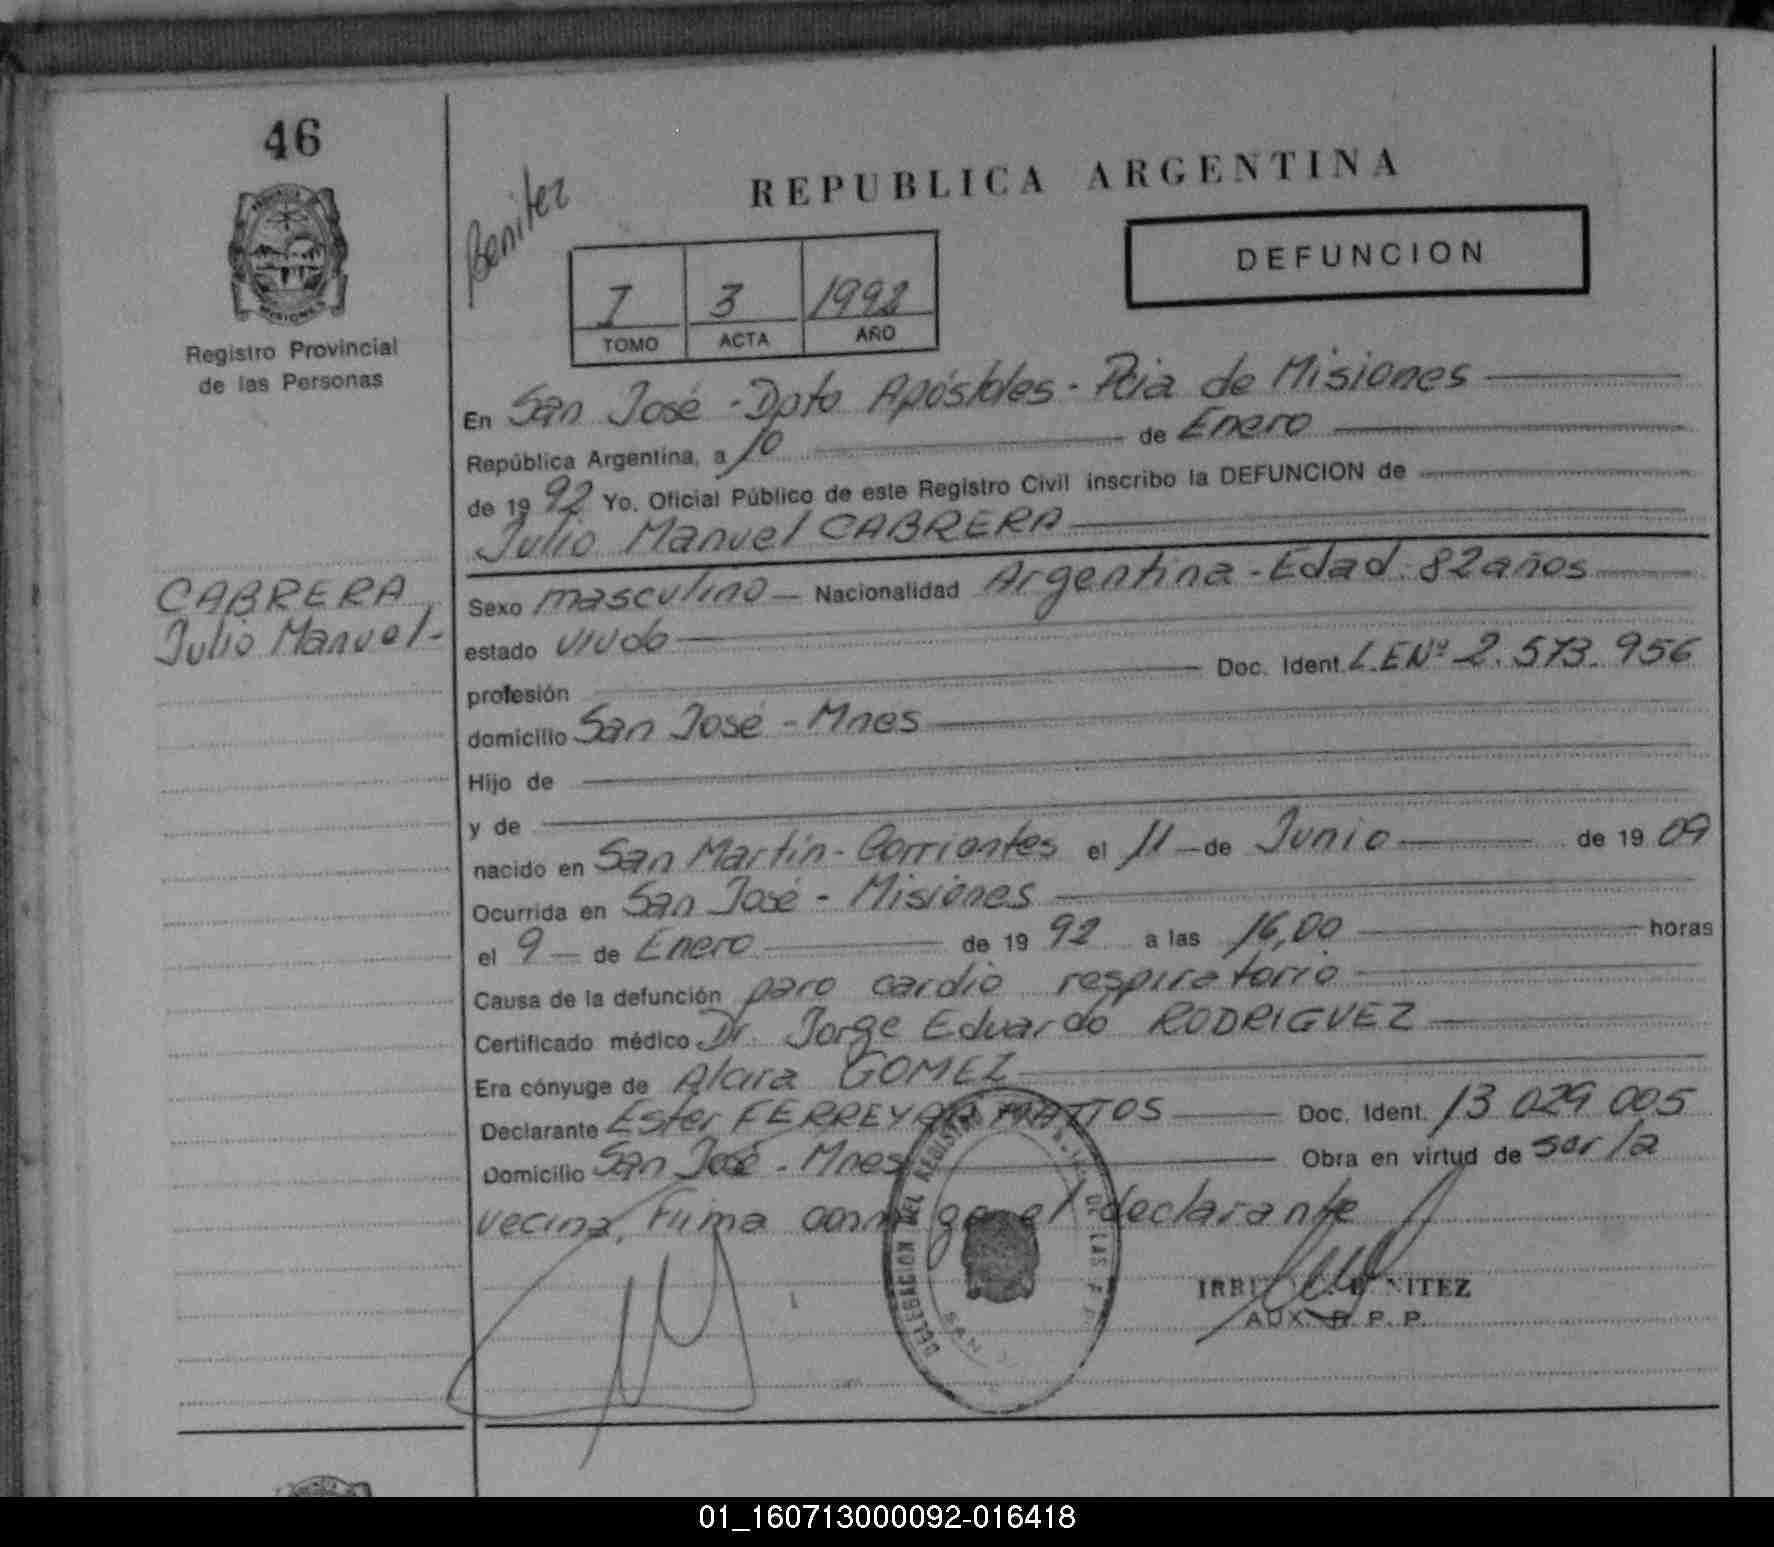 46
MISIONES
Registro Provincial
de las Personas
Benitez
REPUBLICA ARGENTINA
DEFUNCION
I 3 1992
TOMO ACTA AÑO
En San José - Dpto Apóstoles - Pcia de Misiones
República Argentina, a 10 de Enero
de 1992 Yo. Oficial Público de este Registro Civil inscribo la DEFUNCION de
Julio Manuel CABRERA
CABRERA,
Julio Manuel-
Sexo masculino Nacionalidad Argentina - Edad: 82 años
estado viudo
profesión Doc. Ident. L.E Nº 2.573.956
domicilio San José - Mnes
Hijo de
y de
nacido en San Martín - Corrientes el 11 de Junio de 1909
Ocurrida en San José - Misiones
el 9 de Enero de 1992 a las 16,00 horas
Causa de la defunción paro cardio respiratorio
Certificado médico Dr. Jorge Eduardo RODRIGUEZ
Era cónyuge de Alcira GOMEZ
Declarante Ester FERREYRA MATTOS Doc. Ident. 13 029 005
Domicilio San José - Mnes Obra en virtud de ser la
vecina, Firma conmigo el declarante
DELEGACION DEL REGISTRO DE LAS SAN
BENITEZ
AUX. R. P. P.
01_160713000092-016418